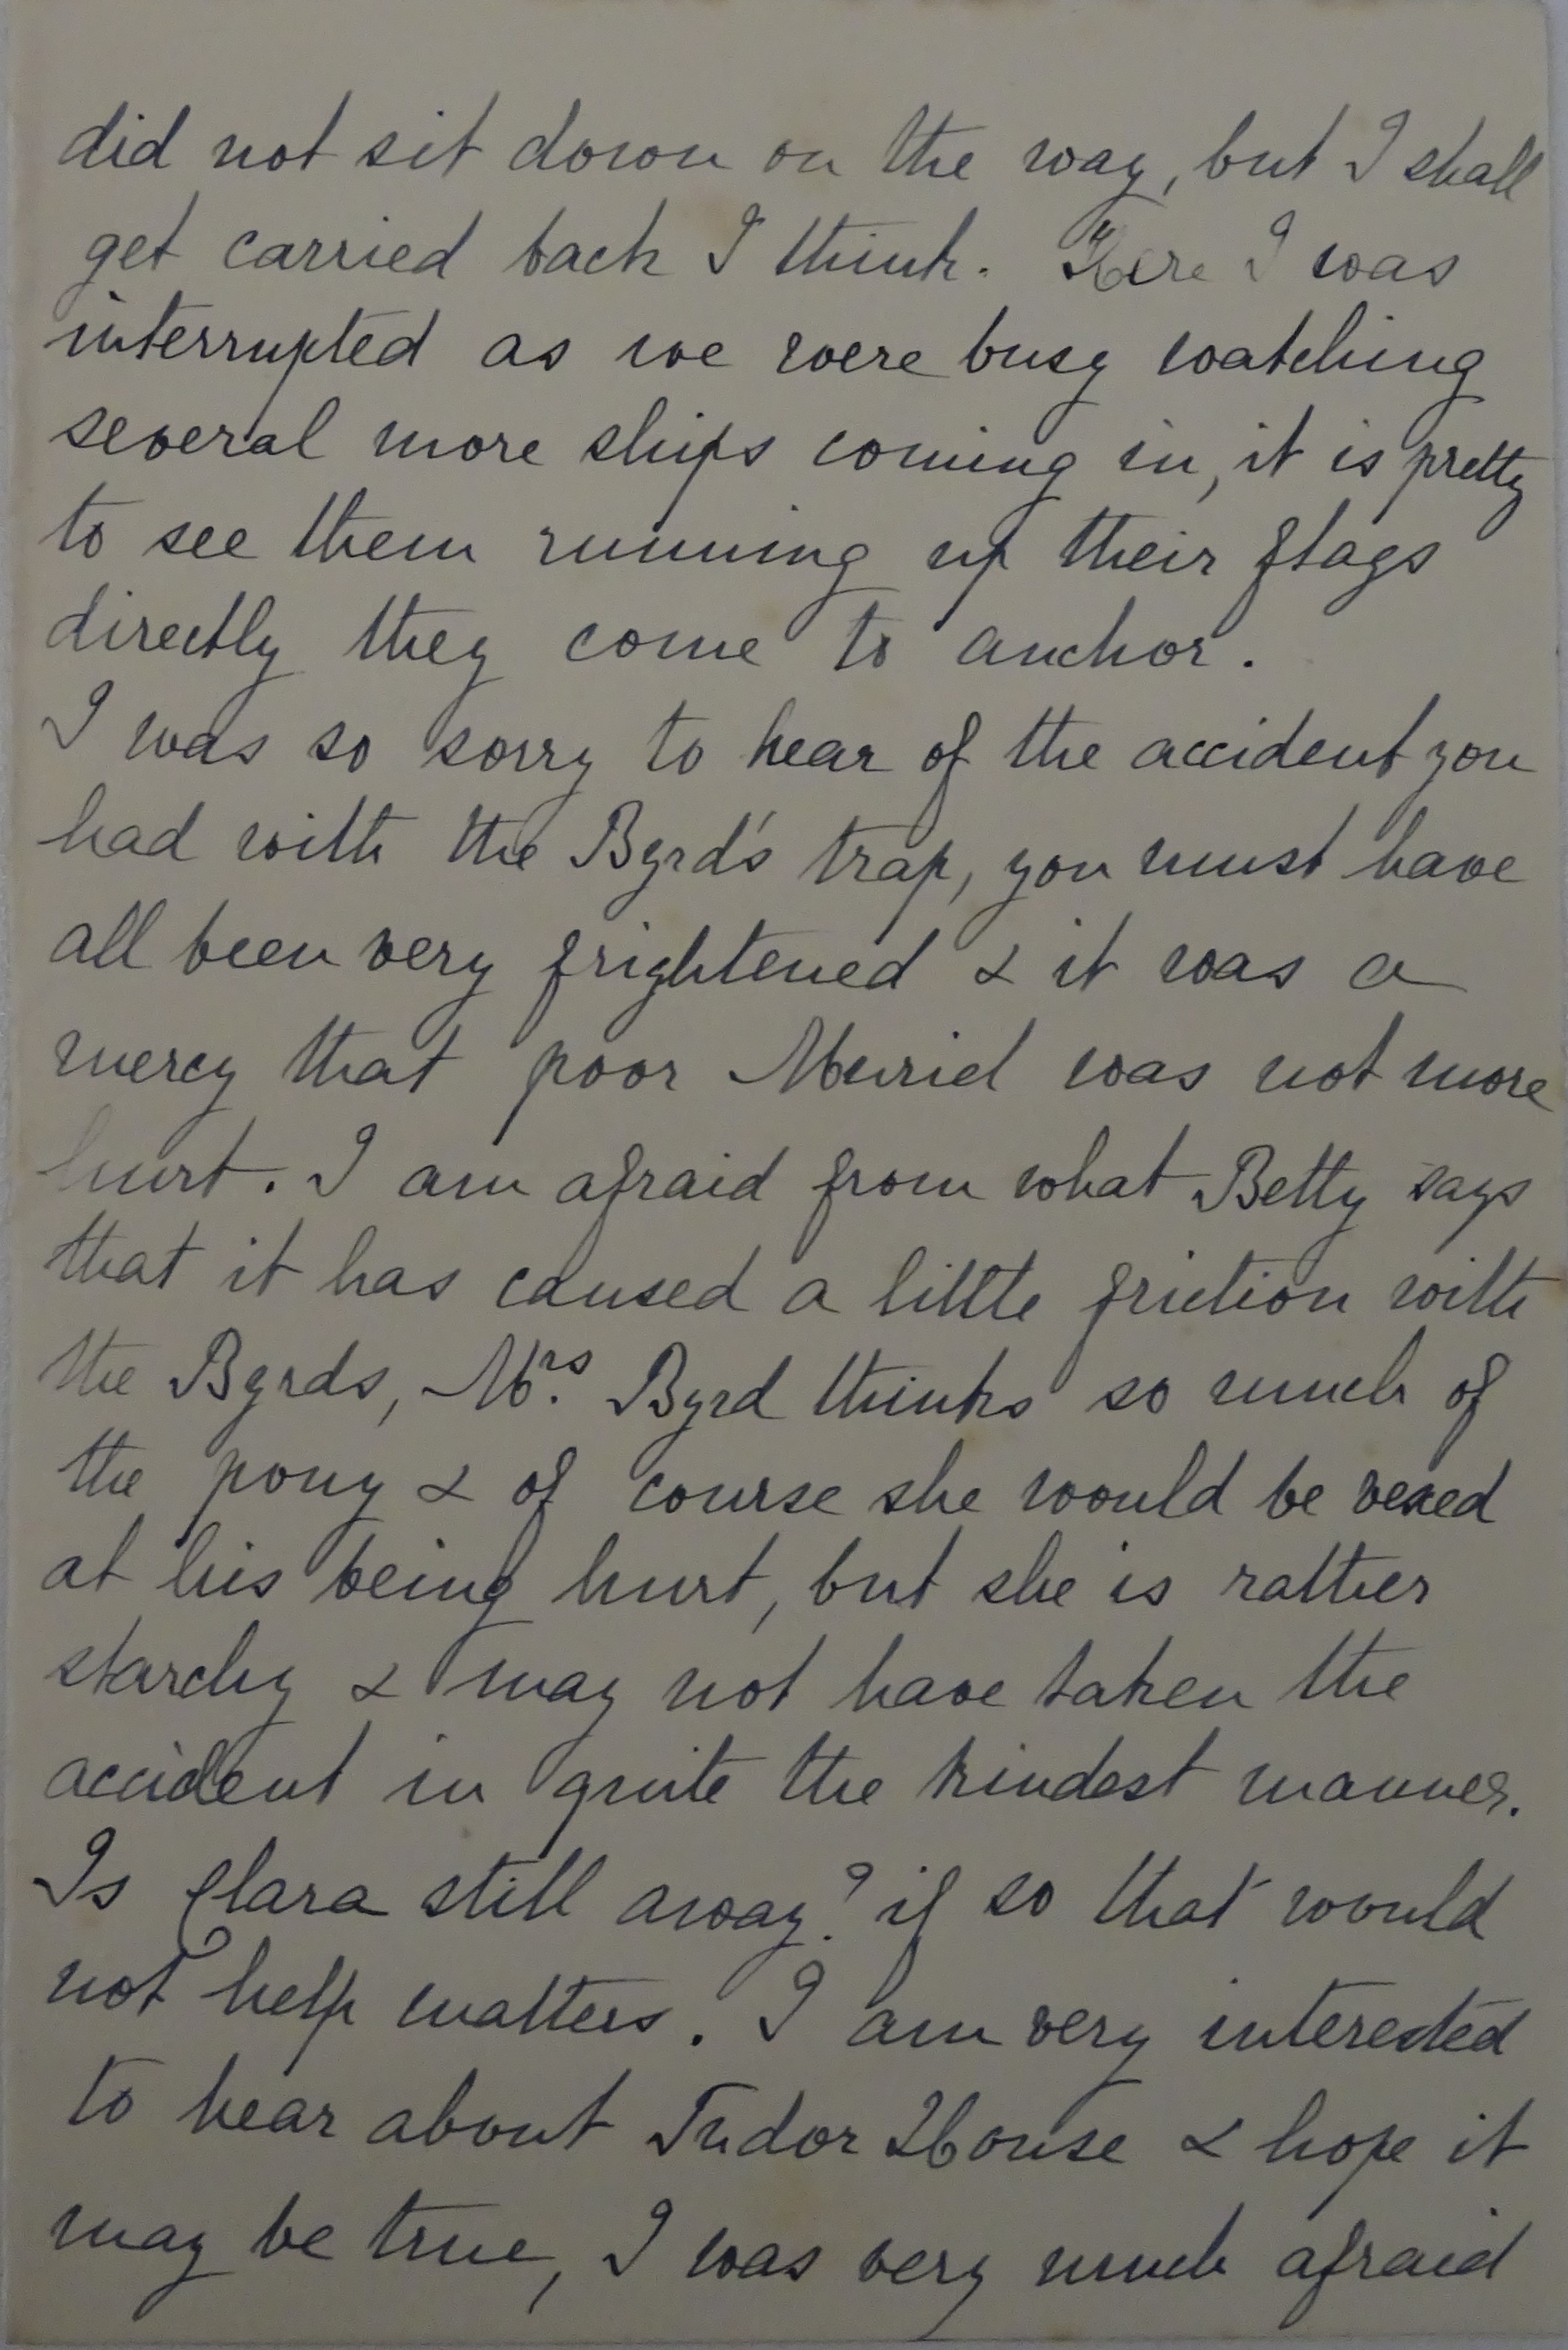 did not sit down on the way, but I shall
get carried back I think. Here I was
interrupted as we were busy watching
several more ships coming in, it is pretty
to see them running up their flags
directly they come to anchor.
I was so sorry to hear of the accident you
had with the Byrd's trap, you must have
all been very frightened & it was a
mercy that poor Muriel was not more
hurt. I am afraid from what Betty says
that it has caused a little friction with
the Byrds, Mrs. Byrd thinks so much of
the pony & of course she would be vexed
at his being hurt, but she is rather
starchy & may not have taken the
accident in quite the kindest manner.
Is Clara still away? if so that would
not help matters. I am very interested
to hear about Tudor House & hope it
may be true, I was very much afraid